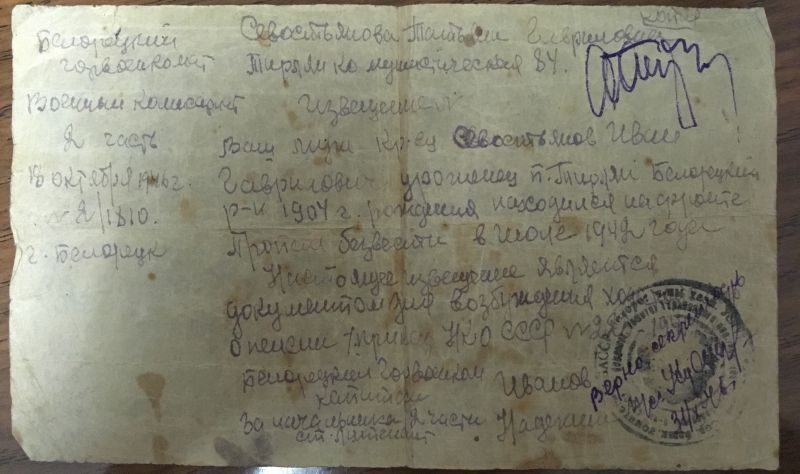 копия
Белорецкий
горвоенкомат
Военный комиссариат
2 часть
18 октября 1946 г.
№ 2/1810.
г. Белорецк
Севостьянова Татьяни Гавриловна
Тирлян Комунистическая 84.
Извещение
Ваш муж кр-ец Севостьянов Иван
Гаврилович уроженец п. Тирлян Белорецкий
р-н 1904 г. рождения находился на фронте
Пропал безвести в июле 1942 года
Настоящее извещение является
документом для возбуждения хода
о пенсии /приказ НКО СССР №
Белорецкий Горвоенком
капитан Иванов
За начальника 2 части
ст. лейтенант Надежкин
Верно секретарь